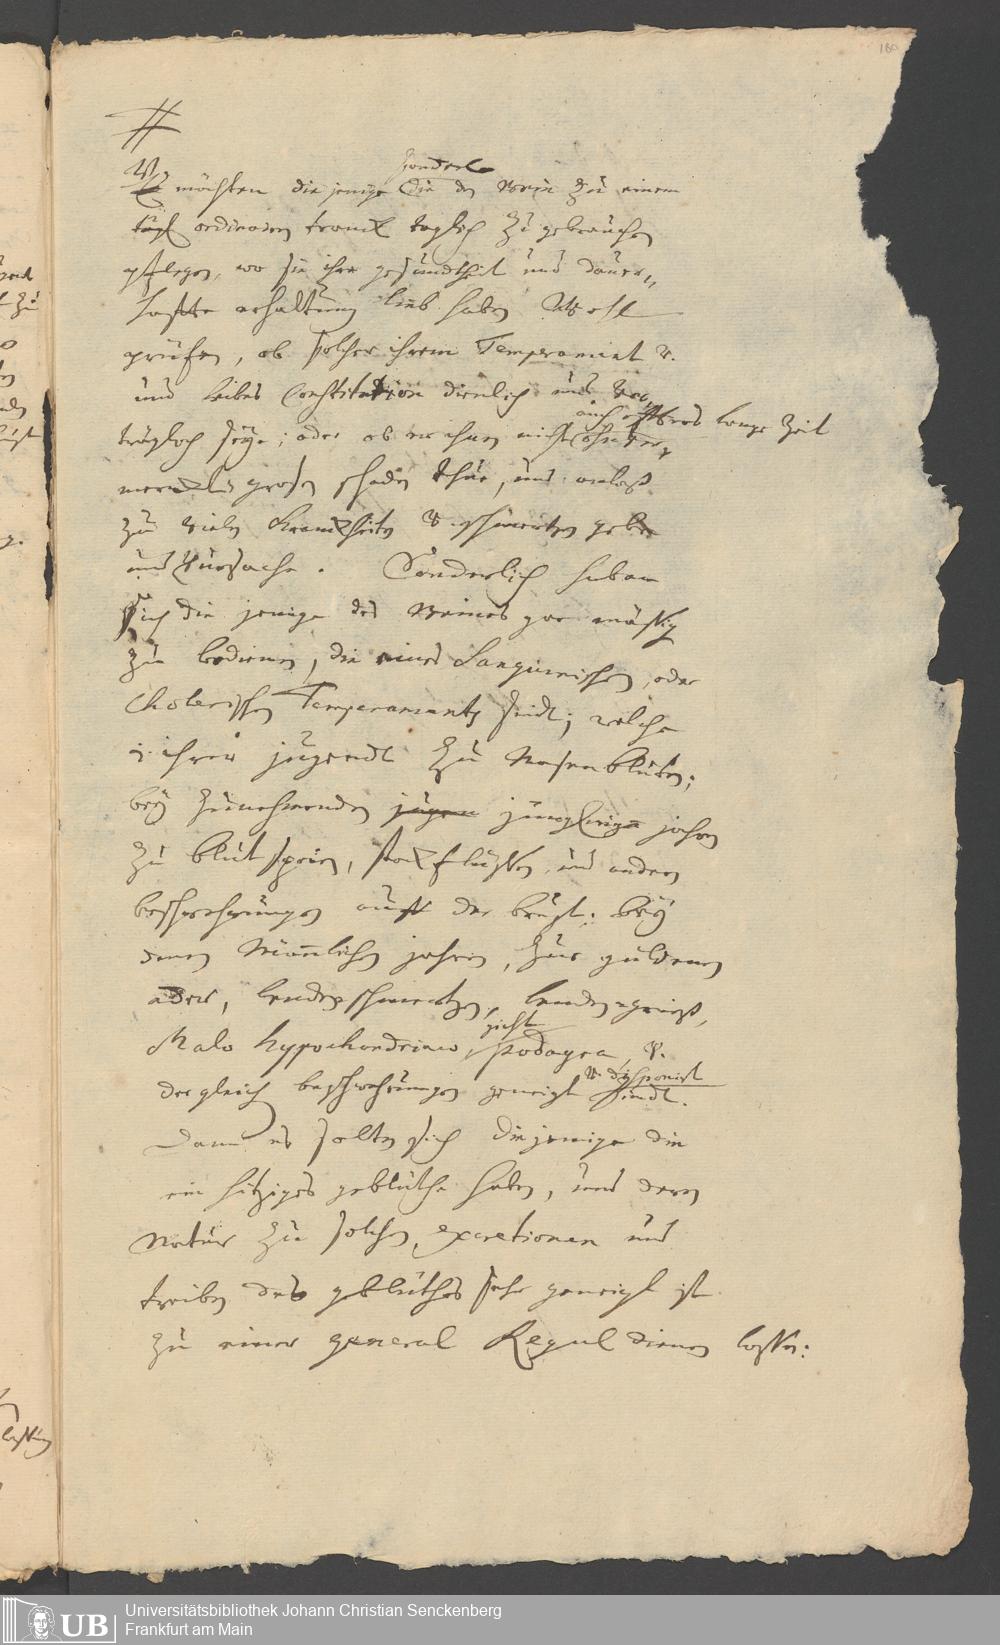 180
#
Es möchten die jenige die den Wein zu einem
sonderl.
tägl. ordinaren tranck täglich zu gebrauchen
pflegen, wo sie ihre gesundtheit und dauer„
haffte erhaltung lieb haben Wohl
prüfen, ob solcher ihrem Temperament u.
und leibes Constitution dienlich und ver„
träglich seye; oder ob er ihnen nicht ohnver„
auch offters lange Zeit
merckli großen schaden thue, und anlaß
zu vielen Kranckheiten u. schmertzen gebe
und Uursache. Sonderlich haben
sich die jenige des Weines gar mäßig
zu bedienen, die eines Sanguinischen, oder
Cholerischen Temperaments seindt; welche
in ihrer jugendt zu Nasenbluten;
bey zunehmenden jugen jünglings jahren
zu blut speien, steckflüßen, und andern
beschwehrungen auff der brust; bey
denen Männlichen jahren, zur guldenen
ader, lendenschmertzen, lendengrieß,
Malo hypochondriaco, podagra, u.
gicht
dergleich beschwehrungen geneigt seindt.
u. disponirt
Dann es solten sich diejenige die
ein hitziges geblüthe haben, und deren
Natur zu solchen excretionen und
treiben des geblüthes sehr geneigt ist
zu einer general Regul dienen laßen:
UB
Universitätsbibliothek Johann Christian Senckenberg
Frankfurt am Main